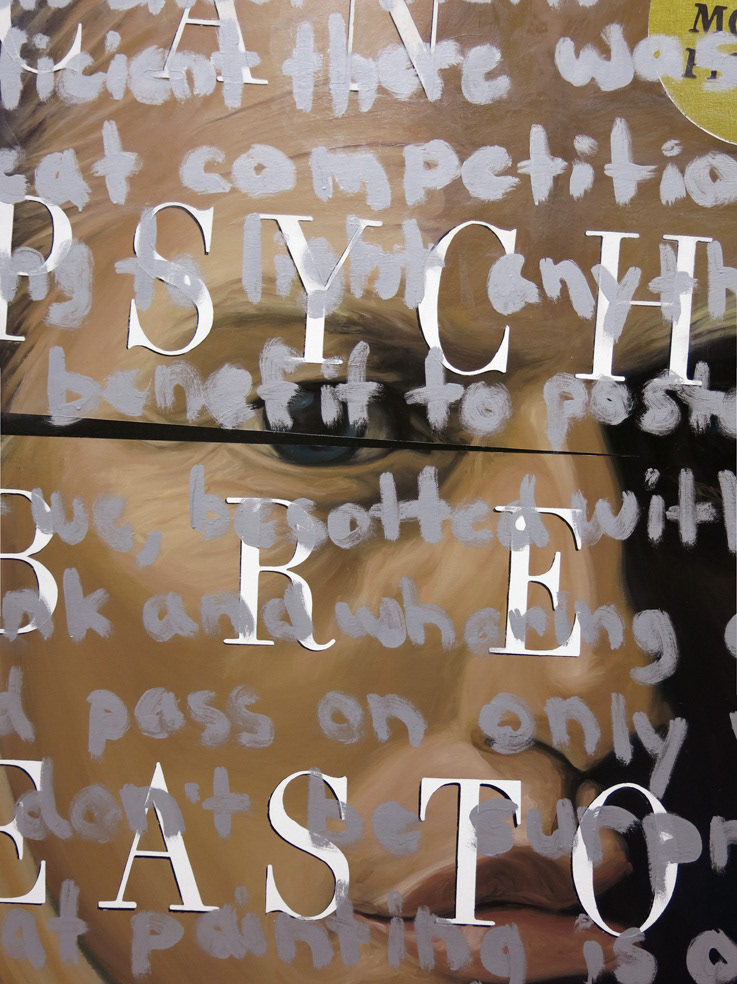 CAN
MO
ficient there was
eat competitio
PSYCH
ng to light anyth
benefit to post
we, besotted with
BRE
nk and whoring
d pass on only
EASTO
don't be surpr
at painting is a